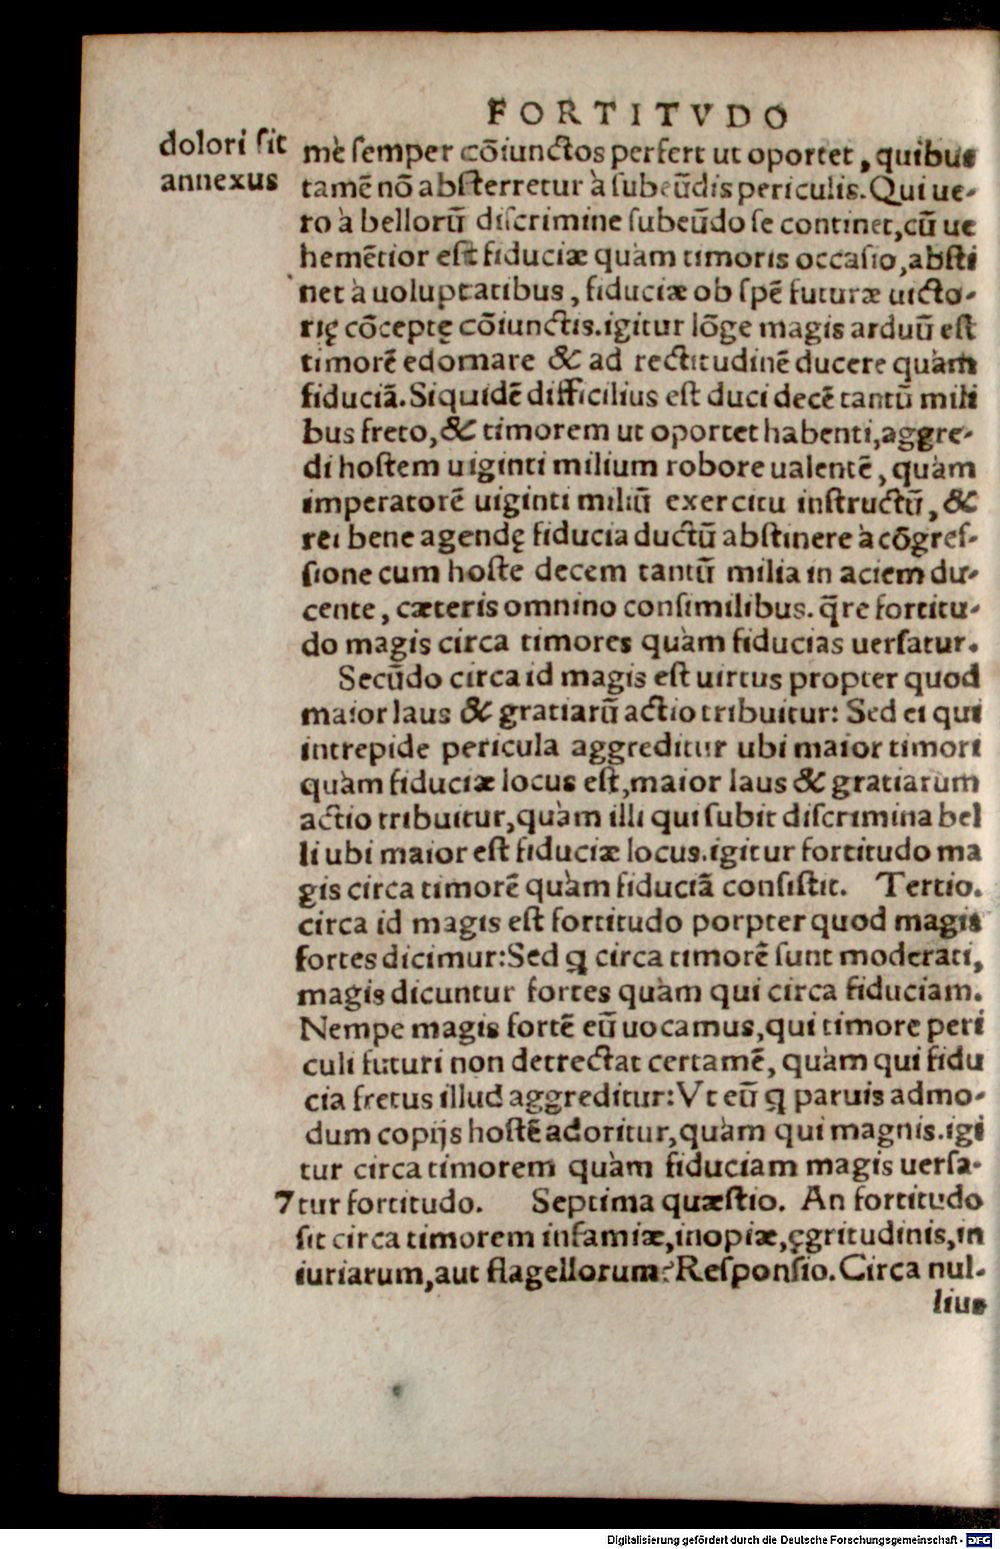 FORTITVDO
dolori ſit
annexus
mē ſemper cōiunctos perfert ut oportet, quibus
tamē nō abſterretur à ſubeūdis periculis. Qui ue-
ro à bellorū diſcrimine ſubeūdo ſe continet, cū ue
hemētior eſt fiduciæ quàm timoris occaſio, abſti
net à uoluptatibus, fiduciæ ob ſpē futuræ uicto-
rię cōceptę cōiunctis. igitur lōge magis arduū eſt
timorē edomare & ad rectitudinē ducere quàm
fiduciā. Siquidē difficilius eſt duci decē tantū mili
bus freto, & timorem ut oportet habenti, aggre-
di hoſtem uiginti milium robore ualentē, quàm
imperatorē uiginti miliū exercitu inſtructū, &
rei bene agendę fiducia ductū abſtinere à cōgreſ-
ſione cum hoſte decem tantū milia in aciem du-
cente, cæteris omnino conſimilibus. q̄re fortitu-
do magis circa timores quàm fiducias uerſatur.
Secūdo circa id magis eſt uirtus propter quod
maior laus & gratiarū actio tribuitur: Sed ei qui
intrepide pericula aggreditur ubi maior timori
quàm fiduciæ locus eſt, maior laus & gratiarum
actio tribuitur, quàm illi qui ſubit diſcrimina bel
li ubi maior eſt fiduciæ locus. igitur fortitudo ma
gis circa timorē quàm fiduciā conſiſtit. Tertio.
circa id magis eſt fortitudo porpter quod magis
fortes dicimur: Sed ꝗ circa timorē ſunt moderati,
magis dicuntur fortes quàm qui circa fiduciam.
Nempe magis fortē eū uocamus, qui timore peri
culi futuri non detrectat certamē, quàm qui fidu
cia fretus illud aggreditur: Vt eū ꝗ paruis admo-
dum copijs hoſtē adoritur, quàm qui magnis. igi
tur circa timorem quàm fiduciam magis uerſa-
7 tur fortitudo. Septima quæſtio. An fortitudo
ſit circa timorem infamiæ, inopiæ, ęgritudinis, in
iuriarum, aut flagellorum? Reſponſio. Circa nul-
lius
Digitalisierung gefördert durch die Deutsche Forschungsgemeinschaft - DFG